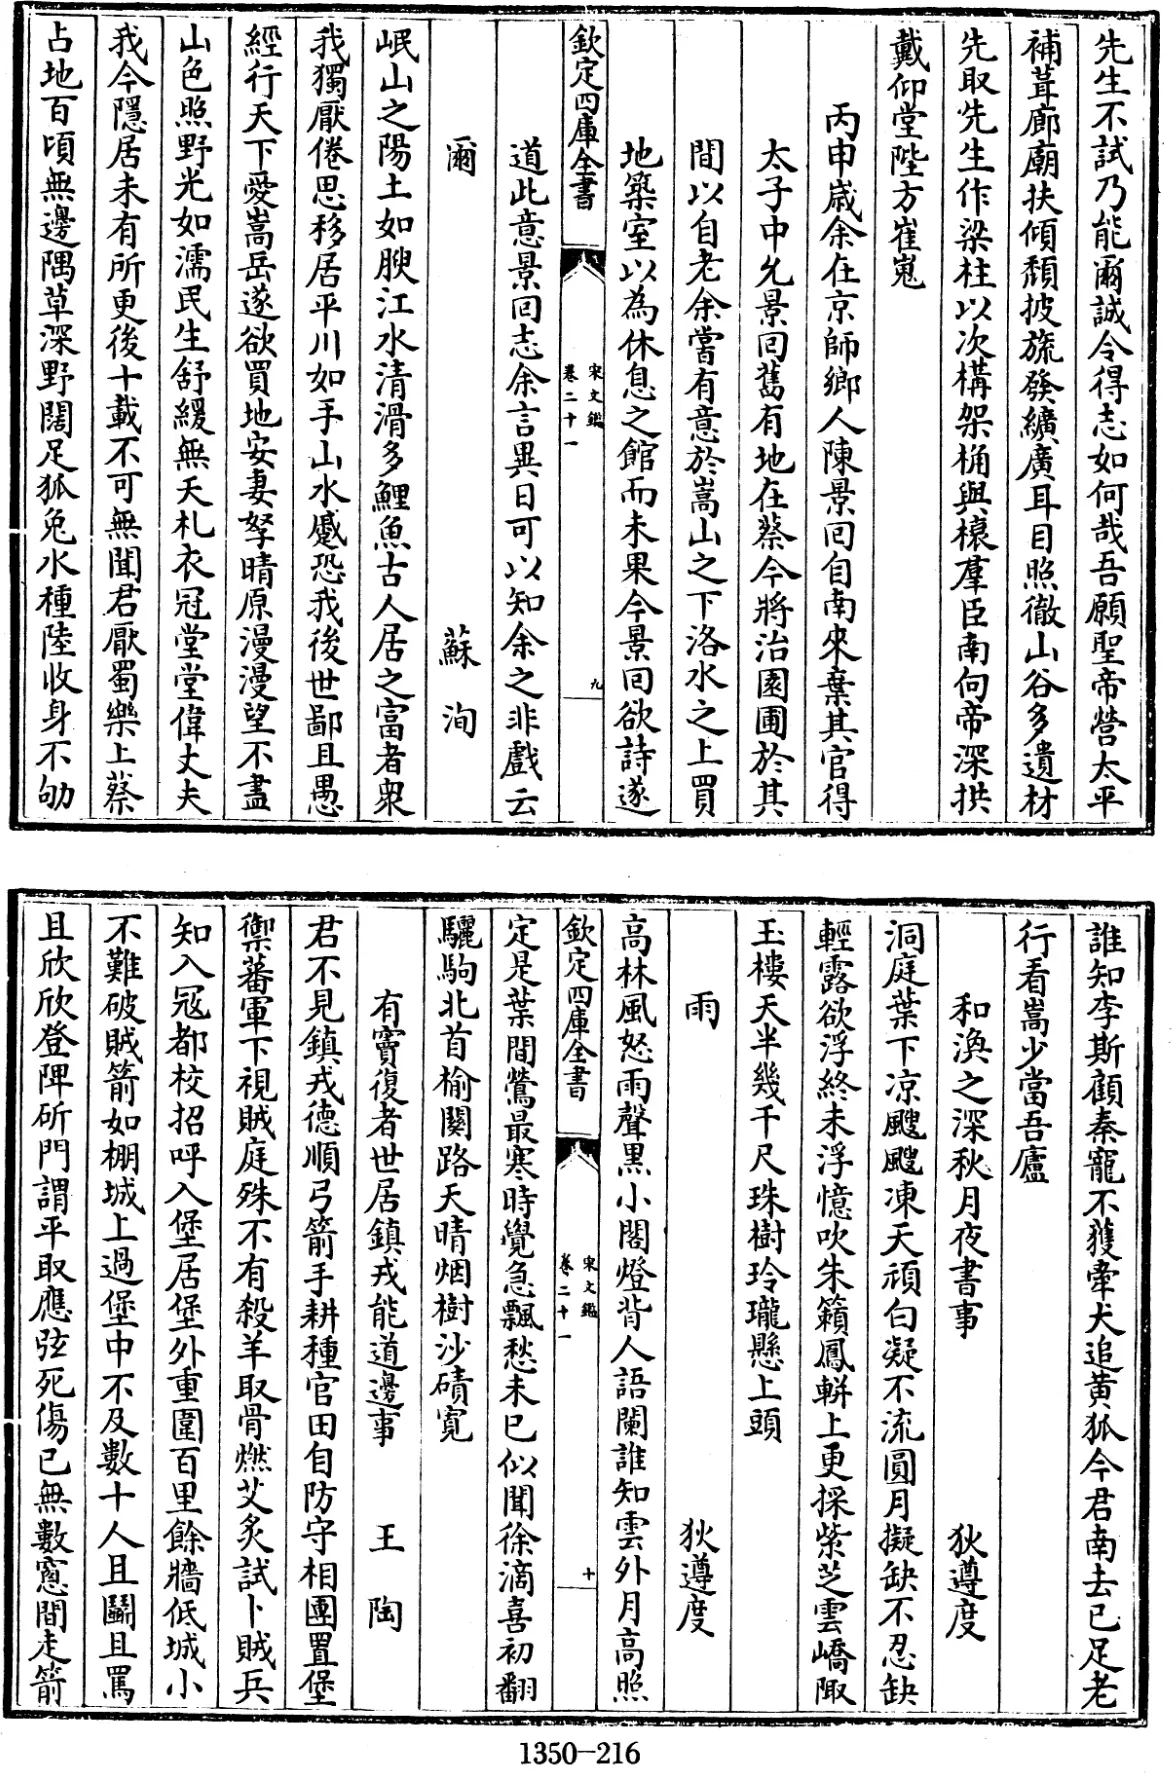 先生不試乃能爾誠令得志如何哉吾願聖帝營太平
補葺廊廟扶傾頹披旒發纊廣耳目照徹山谷多遺材
先取先生作梁柱以次構架桷與榱羣臣南向帝深拱
戴仰堂陛方崔嵬
丙申歲余在京師鄉人陳景回自南來棄其官得
太子中允景回舊有地在蔡今將治園圃於其
間以自老余嘗有意於嵩山之下洛水之上買
地築室以為休息之館而未果今景回欲詩遂
欽定四庫全書
宋文鑑
卷二十一
九
道此意景回志余言異日可以知余之非戲云
爾
蘇洵
岷山之陽土如腴江水清滑多鯉魚古人居之富者衆
我獨厭倦思移居平川如手山水蹙恐我後世鄙且愚
經行天下愛嵩岳遂欲買地安妻孥晴原漫漫望不盡
山色照野光如濡民生舒緩無夭札衣冠堂堂偉丈夫
我今隱居未有所更後十載不可無聞君厭蜀樂上蔡
占地百頃無邊隅草深野闊足狐兔水種陸收身不劬
誰知李斯顧秦寵不獲牽犬追黃狐今君南去已足老
行看嵩少當吾廬
和渙之深秋月夜書事
狄遵度
洞庭葉下凉颸颸凍天頑白凝不流圓月擬缺不忍缺
輕露欲浮終未浮憶吹朱籟鳳輧上更採紫芝雲嶠陬
玉樓天半幾千尺珠樹玲瓏懸上頭
雨
狄遵度
高林風怒雨聲黑小閣燈背人語闌誰知雲外月高照
欽定四庫全書
宋文鑑
卷二十一
十
定是葉間鶯最寒時覺急飄愁未已似聞徐滴喜初翻
驪駒北首榆關路天晴烟樹沙磧寛
有竇復者世居鎮戎能道邊事
王陶
君不見鎮戎德順弓箭手耕種官田自防守相團置堡
禦蕃軍下視賊庭殊不有殺羊取骨燃艾炙試卜賊兵
知入冦都校招呼入堡居堡外重圍百里餘牆低城小
不難破賊箭如棚城上過堡中不及數十人且鬭且罵
且欣欣登陴斫門謂平取應弦死傷已無數窻間走箭
1350-216